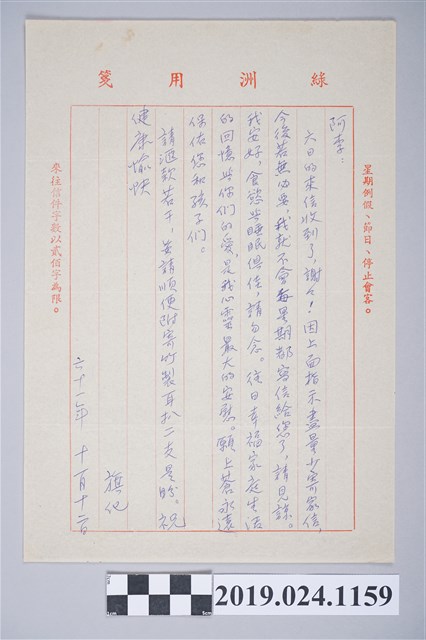 綠洲用箋
星期例假、節日、停止會客。
阿李：
六日的來信收到了，謝々！因上面指示盡量少寄家信，
今後若無必要，我就不會每星期都寫信給您了，請見諒。
我安好，食慾與睡眠俱佳，請勿念。往日幸福家庭生活
的回憶与你們的愛，是我心靈最大的安慰。願上蒼永遠
保佑您和孩子們。
請滙款若干，並請順便附寄竹製耳扒二支是盼。祝
健康愉快
旗化
六十一年 十一月十二日
來往信件字數以貳佰字為限。
2019.024.1159